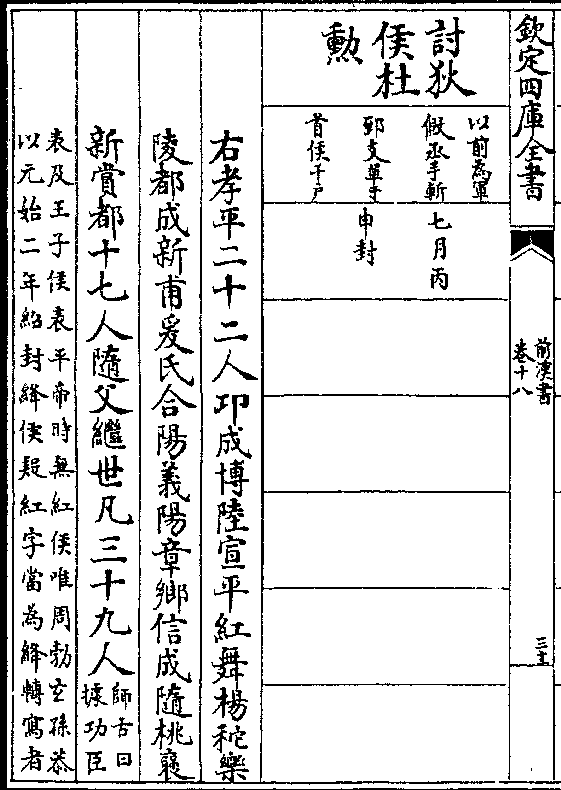 欽定四庫全書
前漢書
卷十八
討狄
侯杜
勲
以前為軍
假丞手斬
郅支單于
首侯千户
七月丙
申封
右孝平二十二人卭成博陸宣平紅舞楊秺樂
陵都成新甫爰氏合陽義陽章鄉信成隨桃襃
新賞都十七人隨父繼世凡三十九人
師古曰
據功臣
表及王子侯表平帝時無紅侯唯周勃玄孫恭
以元始二年紹封絳侯疑紅字當為絳轉寫者